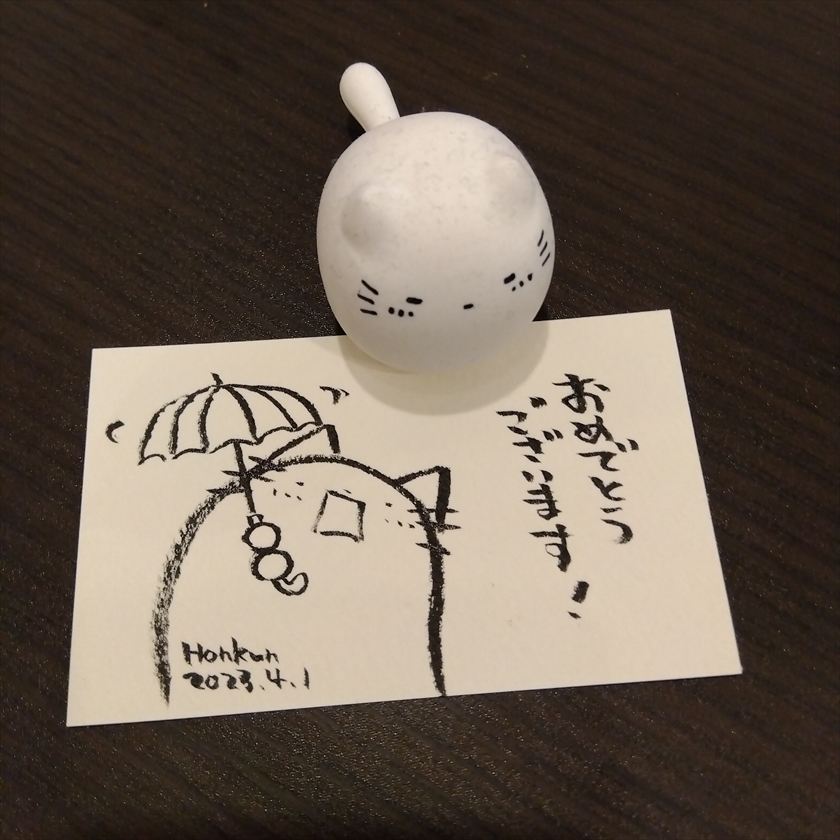 おめでとう
ございます！
Honkun
2023.4.1